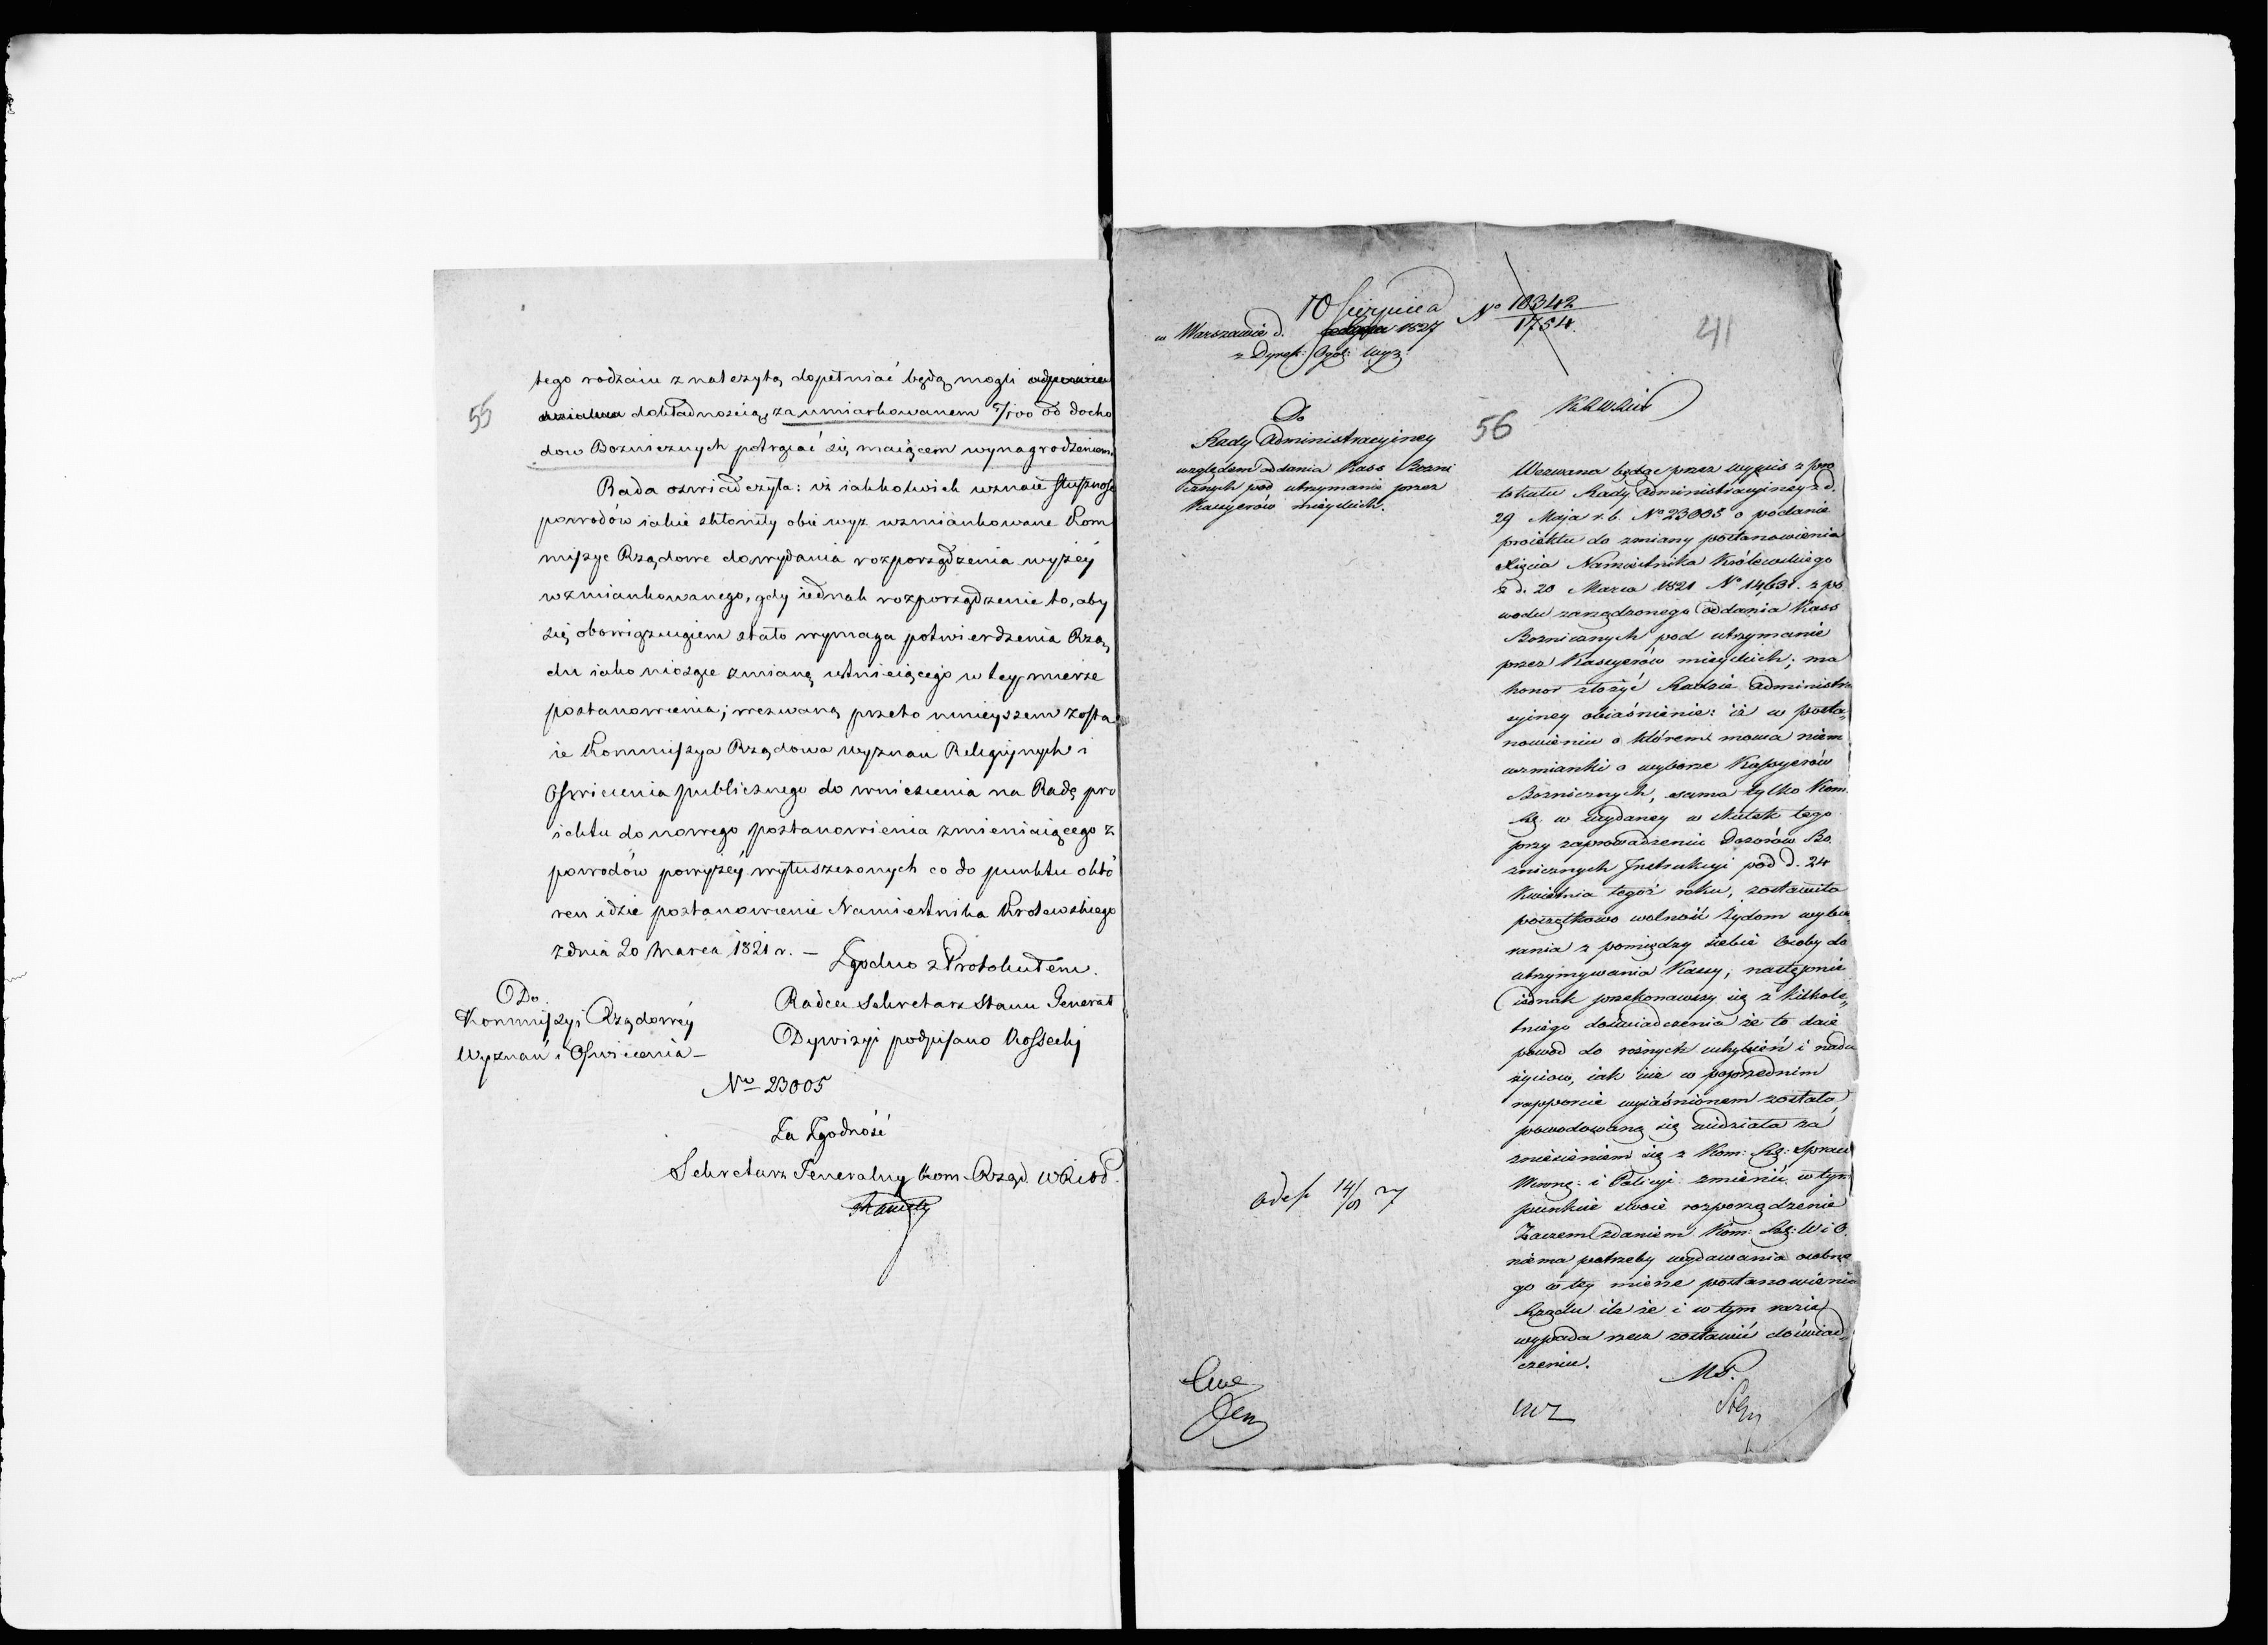 55
tego rodzaiu z należytą dopełniać będą mogli odpowie
dzialna dokładnością, za umiarkowanem 5/100 od docho
dow Bozniczych potrącać się maiącem wynagrodzeniem.
Rada oświadczyła: iż iakkolwiek uznaie słuszność
powodów iakie skłoniły obie wyż wzmiankowane Kom
missye Rządowe do wydania rozporządzenia wyżéy
wzmiankowanego, gdy iednak rozporządzenie to, aby
się obowiązuiącem stało wymaga potwierdzenia Rzą
du iako niosące zmianę istnieiącego w tey mierze
postanowienia; wezwaną przeto ninieyszem zosta
ie Kommissya Rządowa Wyznan Religiynych i
Oswiecenia publicznego do wniesienia na Radę pro
iektu do nowego postanowienia zmieniaiącego z
powodów powyżéy wytuszczonych co do punktu o któ
ren idzie postanowienie Namiestnika Krolewskiego
z dnia 20 Marca 1821 r. —
Zgodno z Protokułem.
Radca Sekretarz Stanu Generał
Dywizyi podpisano Kossecki
Do
Kommissyi Rządowéy
Wyznań i Oswiecenia —
No 23005
Za Zgodność
Sekretarz Generalny Kom. Rząd. W R i O P.
10 Sierpnica
w Warszawie d. 1827
z Dyrek: Ogól: Wyz:
No 10342
1754.
41
56
Do
Rady Administracyiney
względem oddania Kass Bozni
cznych pod utrzymanie przez
Kassyerów mieyskich.
Wezwana będąc przez wypis z pro
tokułu Rady Administracyiney z d.
29 Maja r. b. No 23005 o podanie
proiektu do zmiany postanowienia
Xięcia Namiestnika Królewskiego
z d. 20 Marca 1821 No 14631. z po
wodu zarządzonego oddania Kass
Bozniczych pod utrzymanie
przez Kassyerów mieyskich; ma
honor złożyć Radzie Administra
cyiney obiaśnienie: iż w posta„
nowieniu o którem mowa niem
wzmianki o wyborze Kassyerów
Bozniczych, sama tylko Kom.
Rz. w wydaney w skutek tego
przy zaprowadzeniu Dozorów Bo
zniczych Instrukcyi pod d. 24
Kwietnia tegoż roku, zostawiła
początkowo wolność Żydom wybie„
rania z pomiędzy siebie Osoby do
utrzymywania Kassy; następnie
iednak przekonawszy się z kilkole„
tniego doświadczenia że to daie
powód do rożnych uchybień i nadu
życiow, iak iuż w poprzednim
rapporcie wyiaśnionem zostało
powodowaną się widziała za
zniesieniem się z Kom: Rz: Spraw
Wewnę: i Policyi zmienić w tym
punkcie swoie rozporządzenie
Zaczem zdaniem Kom: Rz: W i O.
niema potrzeby wydawania osobne
go w tey mierze postanowienia
Rządu ile że i w tym razie
wypada rzecz zostawić doświad„
czeniu.
M P.
14/8 27